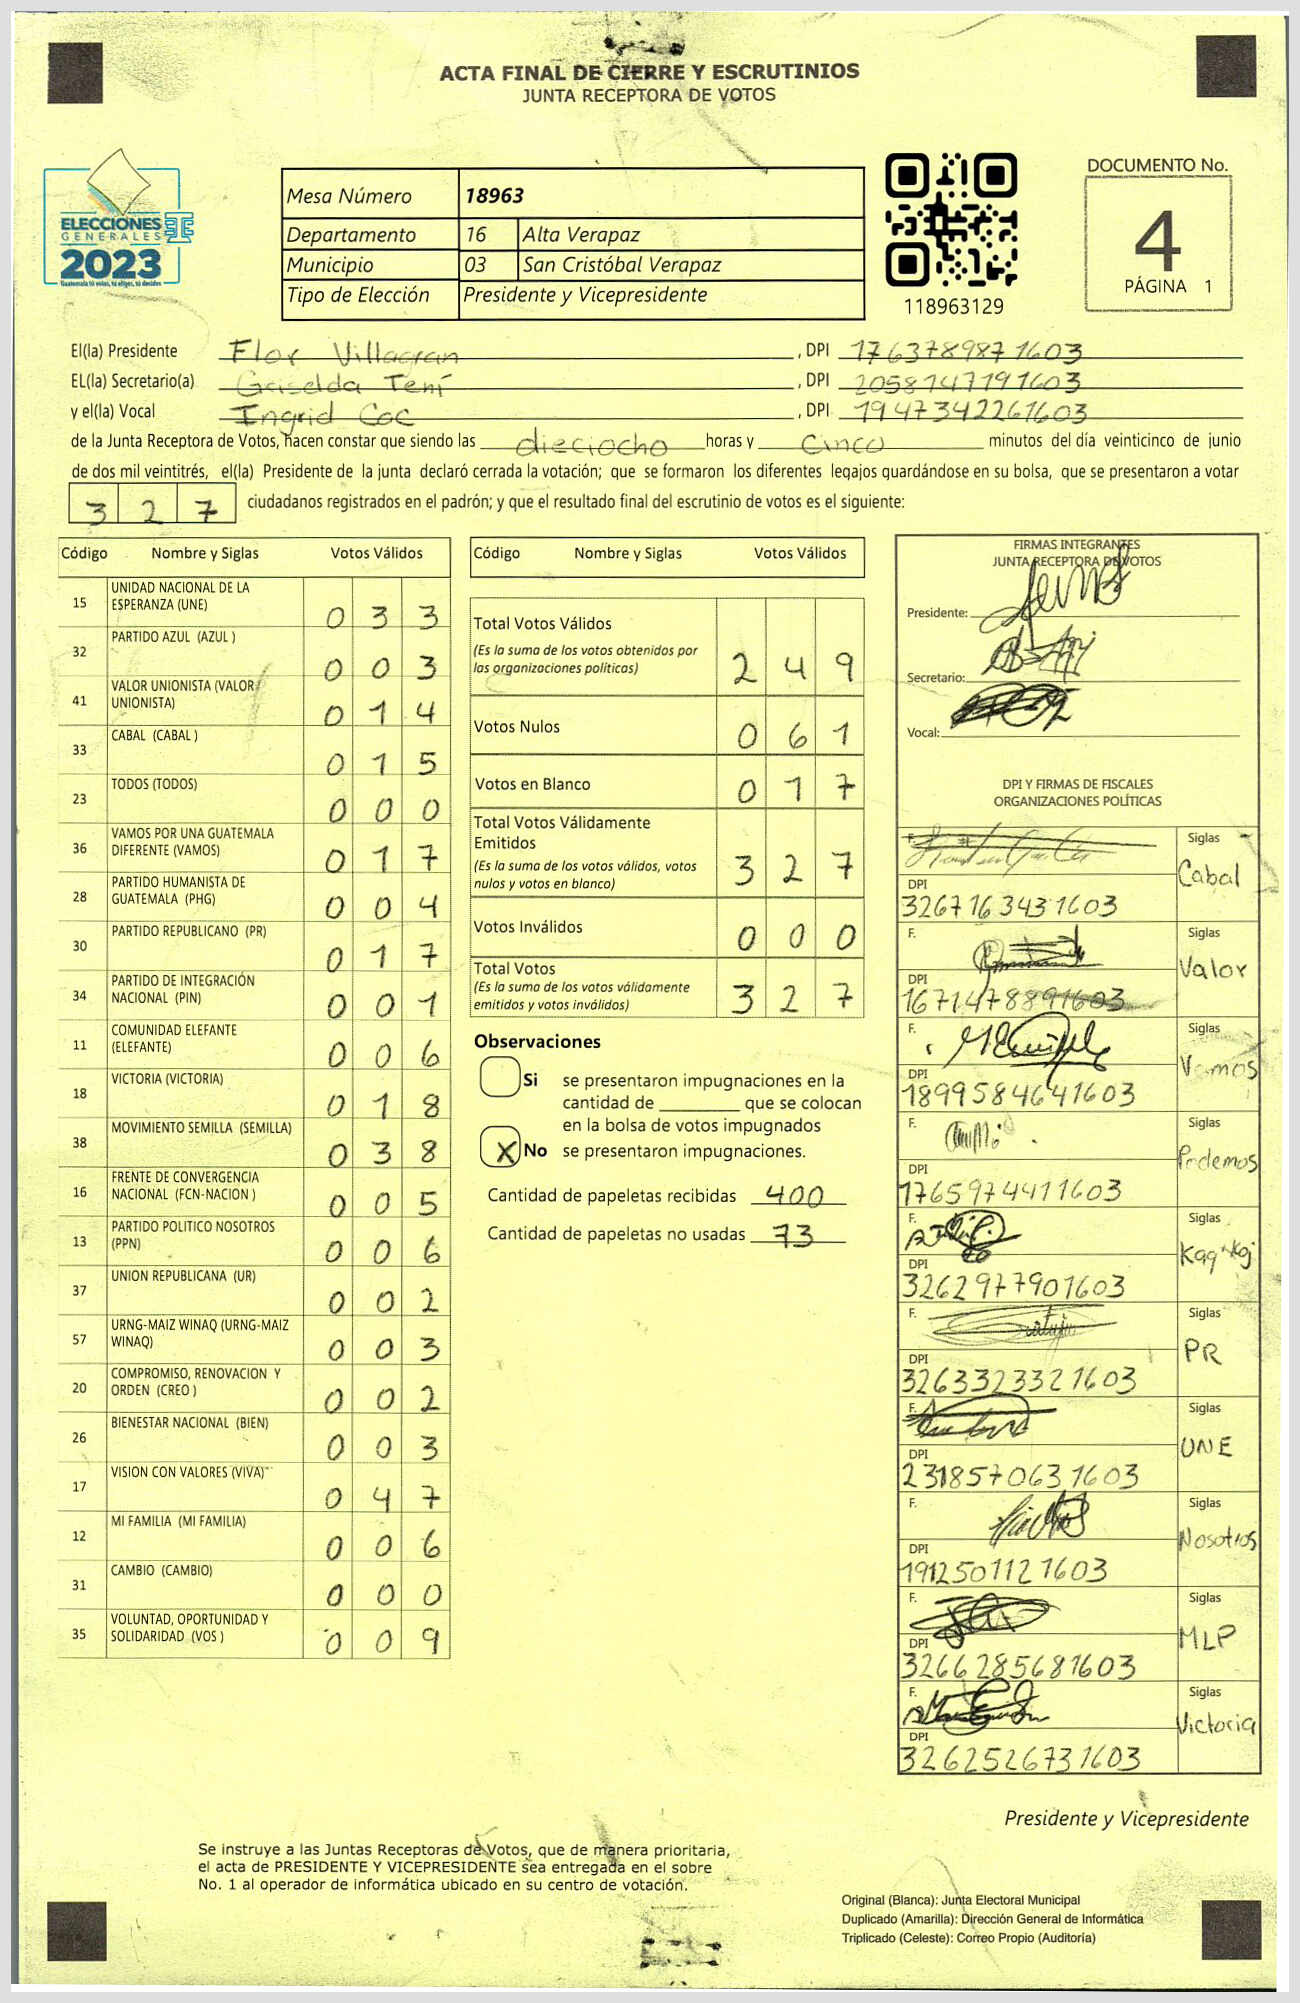 ACTA FINAL DE CIERRE Y ESCRUTINIOS
JUNTA RECEPTORA DE VOTOS
ELECCIONES
GENERALES
2023
Guatemala tú votas, tú eliges, tú decides
Mesa Número 18963
Departamento 16 Alta Verapaz
Municipio 03 San Cristóbal Verapaz
Tipo de Elección Presidente y Vicepresidente
118963129
DOCUMENTO No.
4
PÁGINA 1
El(la) Presidente Flor Villagran , DPI 1763789871603
EL(la) Secretario(a) Griselda Tení , DPI 2058147191603
y el(la) Vocal Ingrid Coc , DPI 1947342261603
de la Junta Receptora de Votos, hacen constar que siendo las dieciocho horas y cinco minutos del día veinticinco de junio
de dos mil veintitrés, el(la) Presidente de la junta declaró cerrada la votación; que se formaron los diferentes legajos guardándose en su bolsa, que se presentaron a votar
327 ciudadanos registrados en el padrón; y que el resultado final del escrutinio de votos es el siguiente:
Código Nombre y Siglas Votos Válidos
15 UNIDAD NACIONAL DE LA
ESPERANZA (UNE) 0 3 3
32 PARTIDO AZUL (AZUL ) 0 0 3
41 VALOR UNIONISTA (VALOR
UNIONISTA) 0 1 4
33 CABAL (CABAL ) 0 1 5
23 TODOS (TODOS) 0 0 0
36 VAMOS POR UNA GUATEMALA
DIFERENTE (VAMOS) 0 1 7
28 PARTIDO HUMANISTA DE
GUATEMALA (PHG) 0 0 4
30 PARTIDO REPUBLICANO (PR) 0 1 7
34 PARTIDO DE INTEGRACIÓN
NACIONAL (PIN) 0 0 1
11 COMUNIDAD ELEFANTE
(ELEFANTE) 0 0 6
18 VICTORIA (VICTORIA) 0 1 8
38 MOVIMIENTO SEMILLA (SEMILLA) 0 3 8
16 FRENTE DE CONVERGENCIA
NACIONAL (FCN-NACION ) 0 0 5
13 PARTIDO POLITICO NOSOTROS
(PPN) 0 0 6
37 UNION REPUBLICANA (UR) 0 0 2
57 URNG-MAIZ WINAQ (URNG-MAIZ
WINAQ) 0 0 3
20 COMPROMISO, RENOVACION Y
ORDEN (CREO ) 0 0 2
26 BIENESTAR NACIONAL (BIEN) 0 0 3
17 VISION CON VALORES (VIVA) 0 4 7
12 MI FAMILIA (MI FAMILIA) 0 0 6
31 CAMBIO (CAMBIO) 0 0 0
35 VOLUNTAD, OPORTUNIDAD Y
SOLIDARIDAD (VOS ) 0 0 9
Código Nombre y Siglas Votos Válidos
Total Votos Válidos
(Es la suma de los votos obtenidos por
las organizaciones políticas) 2 4 9
Votos Nulos 0 6 1
Votos en Blanco 0 1 7
Total Votos Válidamente
Emitidos
(Es la suma de los votos válidos, votos
nulos y votos en blanco) 3 2 7
Votos Inválidos 0 0 0
Total Votos
(Es la suma de los votos válidamente
emitidos y votos inválidos) 3 2 7
Observaciones
Si se presentaron impugnaciones en la
cantidad de ________ que se colocan
en la bolsa de votos impugnados
X No se presentaron impugnaciones.
Cantidad de papeletas recibidas 400
Cantidad de papeletas no usadas 73
FIRMAS INTEGRANTES
JUNTA RECEPTORA DE VOTOS
Presidente:
Secretario:
Vocal:
DPI Y FIRMAS DE FISCALES
ORGANIZACIONES POLÍTICAS
F. Siglas
Cabal
DPI
3267163431603
F. Siglas
Valor
DPI
1671478891603
F. Siglas
Vamos
DPI
1899584641603
F. Siglas
Podemos
DPI
1765974411603
F. Siglas
DPI
3262977901603
F. Siglas
PR
DPI
3263323321603
F. Siglas
UNE
DPI
2318570631603
F. Siglas
Nosotros
DPI
1912501121603
F. Siglas
MLP
DPI
3266285681603
F. Siglas
Victoria
DPI
3262526731603
Presidente y Vicepresidente
Se instruye a las Juntas Receptoras de Votos, que de manera prioritaria,
el acta de PRESIDENTE Y VICEPRESIDENTE sea entregada en el sobre
No. 1 al operador de informática ubicado en su centro de votación.
Original (Blanca): Junta Electoral Municipal
Duplicado (Amarilla): Dirección General de Informática
Triplicado (Celeste): Correo Propio (Auditoría)